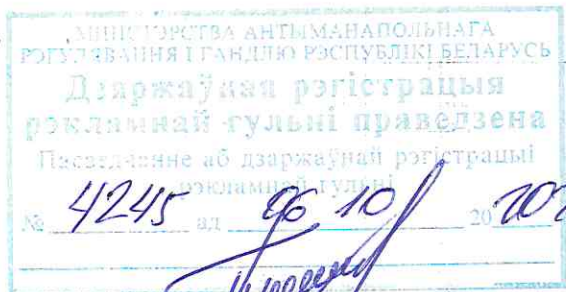 МІНІСТЭРСТВА АНТЫМАНАПОЛЬНАГА
РЭГУЛЯВАННЯ І ГАНДЛЮ РЭСПУБЛІКІ БЕЛАРУСЬ
Дзяржаўная рэгістрацыя
рэкламнай гульні праведзена
Пасведчанне аб дзяржаўнай рэгістрацыі
рэкламнай гульні
№ 4245 ад 06 10 20